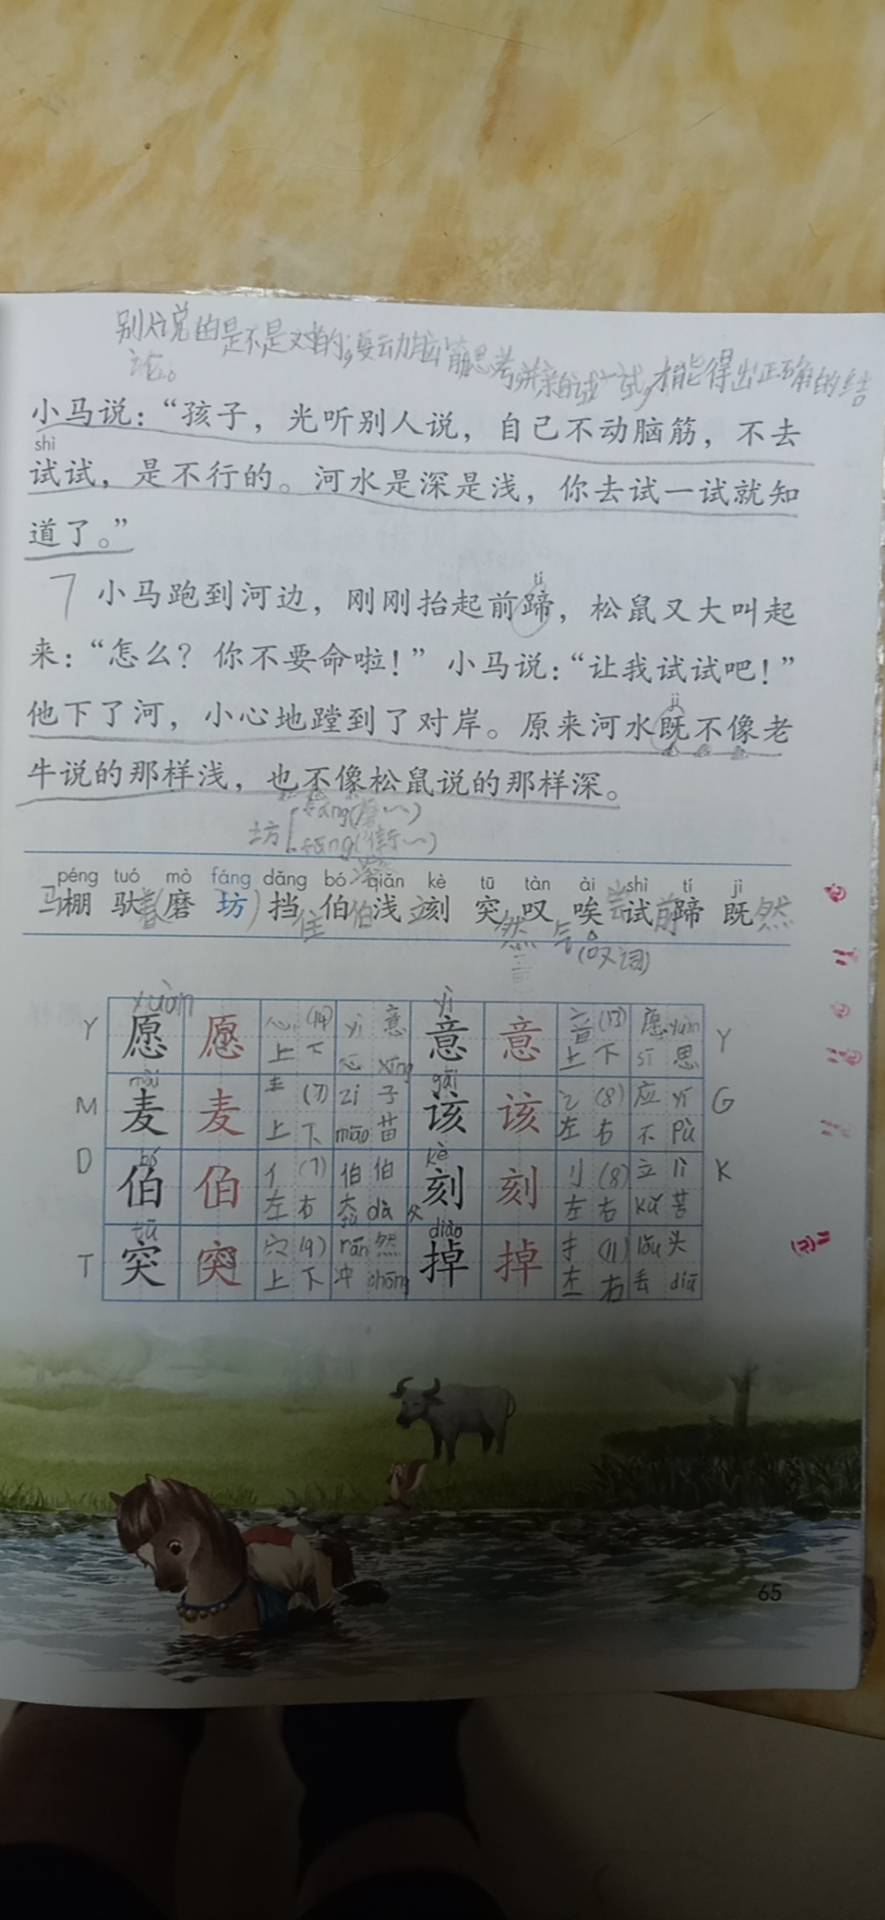 别人说的是不是对的,要动脑筋思考,并亲自试一试,才能得出正确的结
论。
小马说：“孩子，光听别人说，自己不动脑筋，不去
shì
试试，是不行的。河水是深是浅，你去试一试就知
道了。”
7 小马跑到河边，刚刚抬起前蹄，松鼠又大叫起
tí
来：“怎么？你不要命啦！”小马说：“让我试试吧！”
jì
他下了河，小心地蹚到了对岸。原来河水既不像老
牛说的那样浅，也不像松鼠说的那样深。
坊 fáng(磨~)
fāng(街~)
péng tuó mò fáng dǎng bó qiǎn kè tū tàn ài shì tí jì
马棚 驮着(磨 坊) 挡住 伯伯 浅 立刻 突然 叹气 唉 尝试 前蹄 既然
(叹词)
xuàn yì
Y 愿 愿 心 (14) yì 意 意 意 音 (13) 愿 yuàn Y
上 下 心 xīng 上 下 sī 思
mài gāi
M 麦 麦 龶 (7) zi 子 该 该 讠 (8) 应 yī G
上 下 miāo 苗 左 右 不 pù
bó kè
D 伯 伯 亻 (7) 伯 伯 刻 刻 刂 (8) 立 lì K
左 右 dà 左 右 kǔ 苦
tū diào
T 突 突 穴 (9) rán 然 掉 掉 扌 (11) 头
上 下 冲 chōng 左 右 丢 diū
65